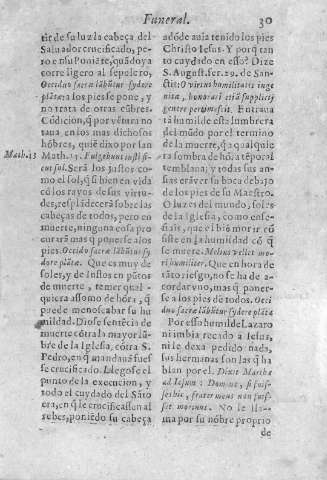 Funeral. 30
tir de su luz la cabeça del
Saluador crucificado, pe-
corre ligero al sepolcro,
Occiduo sacra lābūtur sydere
los pies se pone, y
no trata de otras cūbres.
Cōdicion, q̄ por vētura no
taua en los mas dichosos
hōbres, quiē dixo por san
Math.13 Math.13. Fulgebunt iusti si-
cut sol. Serā los justos como
el sol, q̄ si bien en vida
cō los rayos de sus virtu-
des, resplādecerā sobre las
cabeças de todos, pero en
muerte, ninguna cosa pro
curarā mas q̄ ponerse a los
pies. Occiduo sacra lābūtur sy-
dere plātæ. Que es muy de
soles, y de Iustos en pūtos
de muerte, temer qual-
quiera assomo de hōra, q̄
puede menoscabar su hu
mildad. Diose sentēcia de
muerte cōtra la mayor lū-
bre de la Iglesia, cōtra S.
Pedro, en q̄ mandauā fues
se crucificado. Llegose el
punto de la execucion, y
todo el cuydado del Sāto
era, en q̄ le crucificassen al
rebes, poniēdo su cabeça
adōde auia tenido los pies
Christo Iesus. Y porq̄ tan
to cuydado en esso? Dize
S. August. ser. 29. de San-
ctis: O virtus humilitatis inge
nita, honorari etiā supplicij
genere pertimescit. Entraua
tā humilde esta lumbrera
del mūdo por el termino
de la muerte, q̄ a qualquie
ra sombra de hōra tēporal
temblaua; y todas sus an-
sias erā ver su boca debajo
de los pies de su Maestro.
O luzes del mundo, soles
de la Iglesia, como ense-
ñais, que el biē morir cō
siste en la humildad cō q̄
se muere. Melius vellet mo-
ri humiliter. Que en hora de
tāto riesgo, no se ha de a-
cordar vno, mas q̄ poner-
se a los pies de todos. Occi
duo sacra lābūtur sydere plātæ
Por esso humilde Lazaro
ni imbia recado a Iesus,
ni le dexa pedido nada,
sus hermanas son las q̄ ha
blan por el. Dixit Martha
ad Iesum: Domine, si fuis-
ses hic, frater meus non fuis-
set mortuus. No le lla-
ma por su nōbre proprio
de